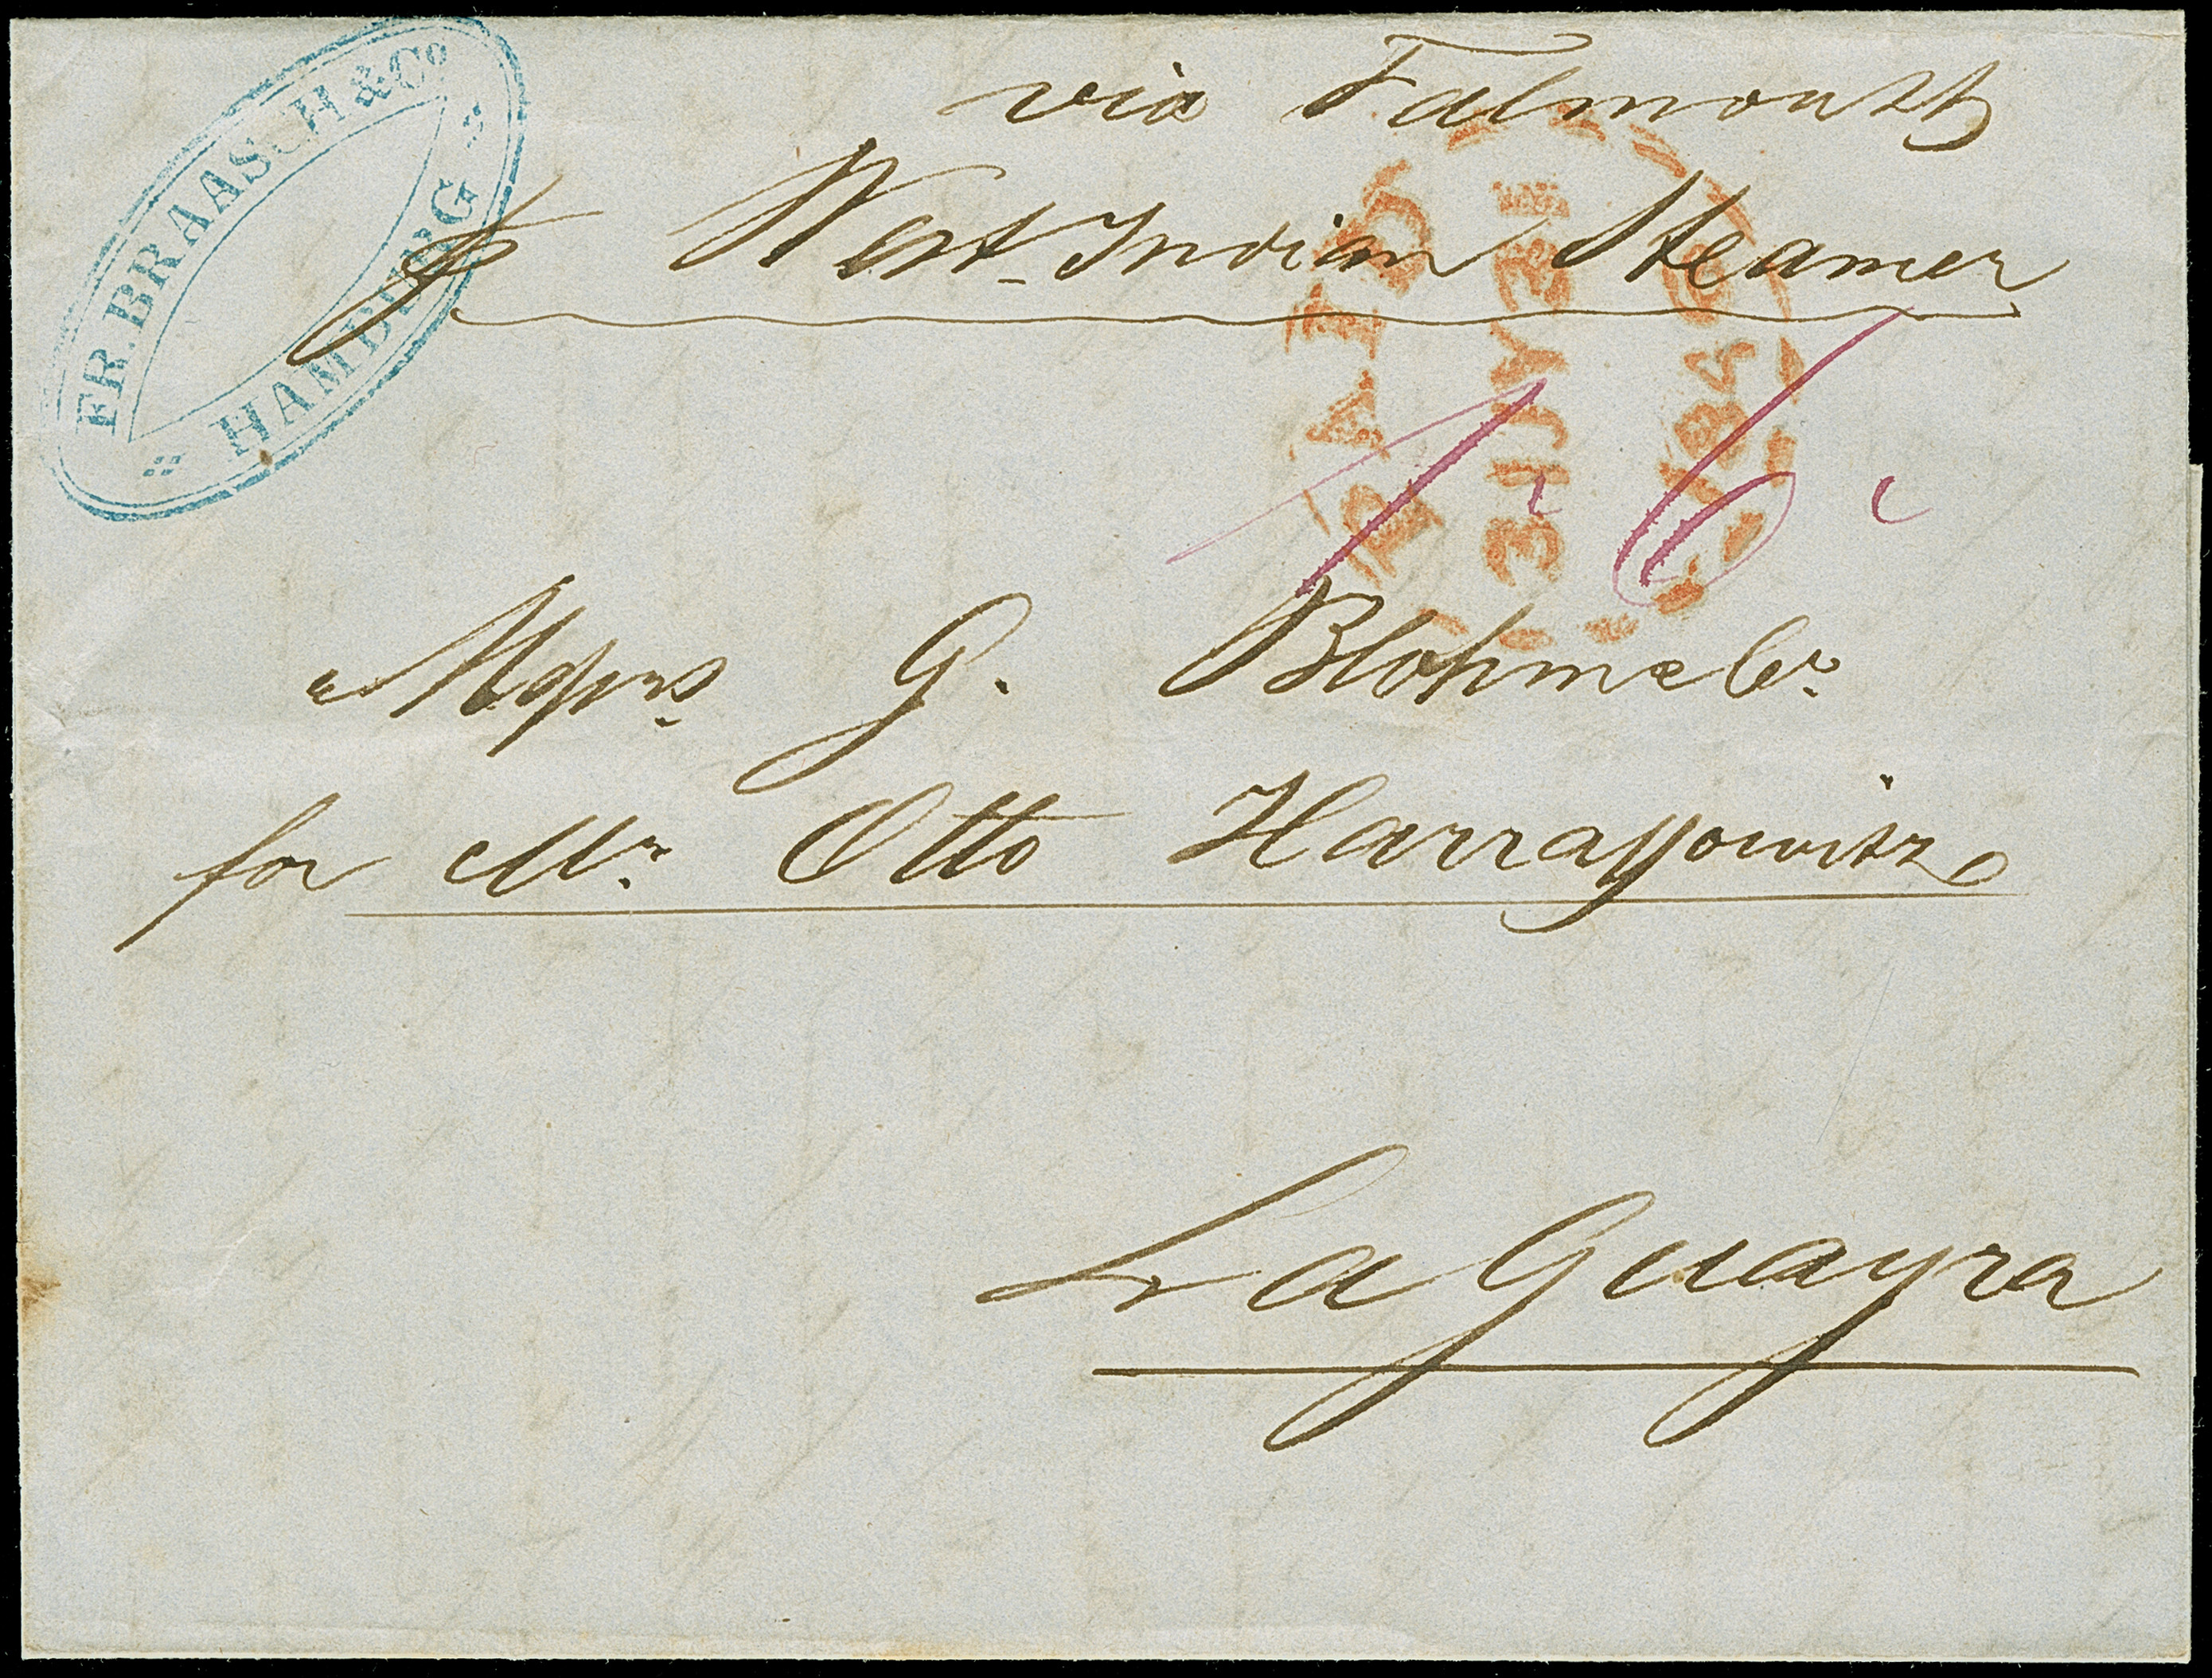 FR. BRAASCH & Co
HAMBURG
via Falmouth
pr West-Indian Steamer
PAID
3 JY 3
184
1 6
Messrs G. Blohm & Co.
for Mr. Otto Harrassowitz
La Guayra